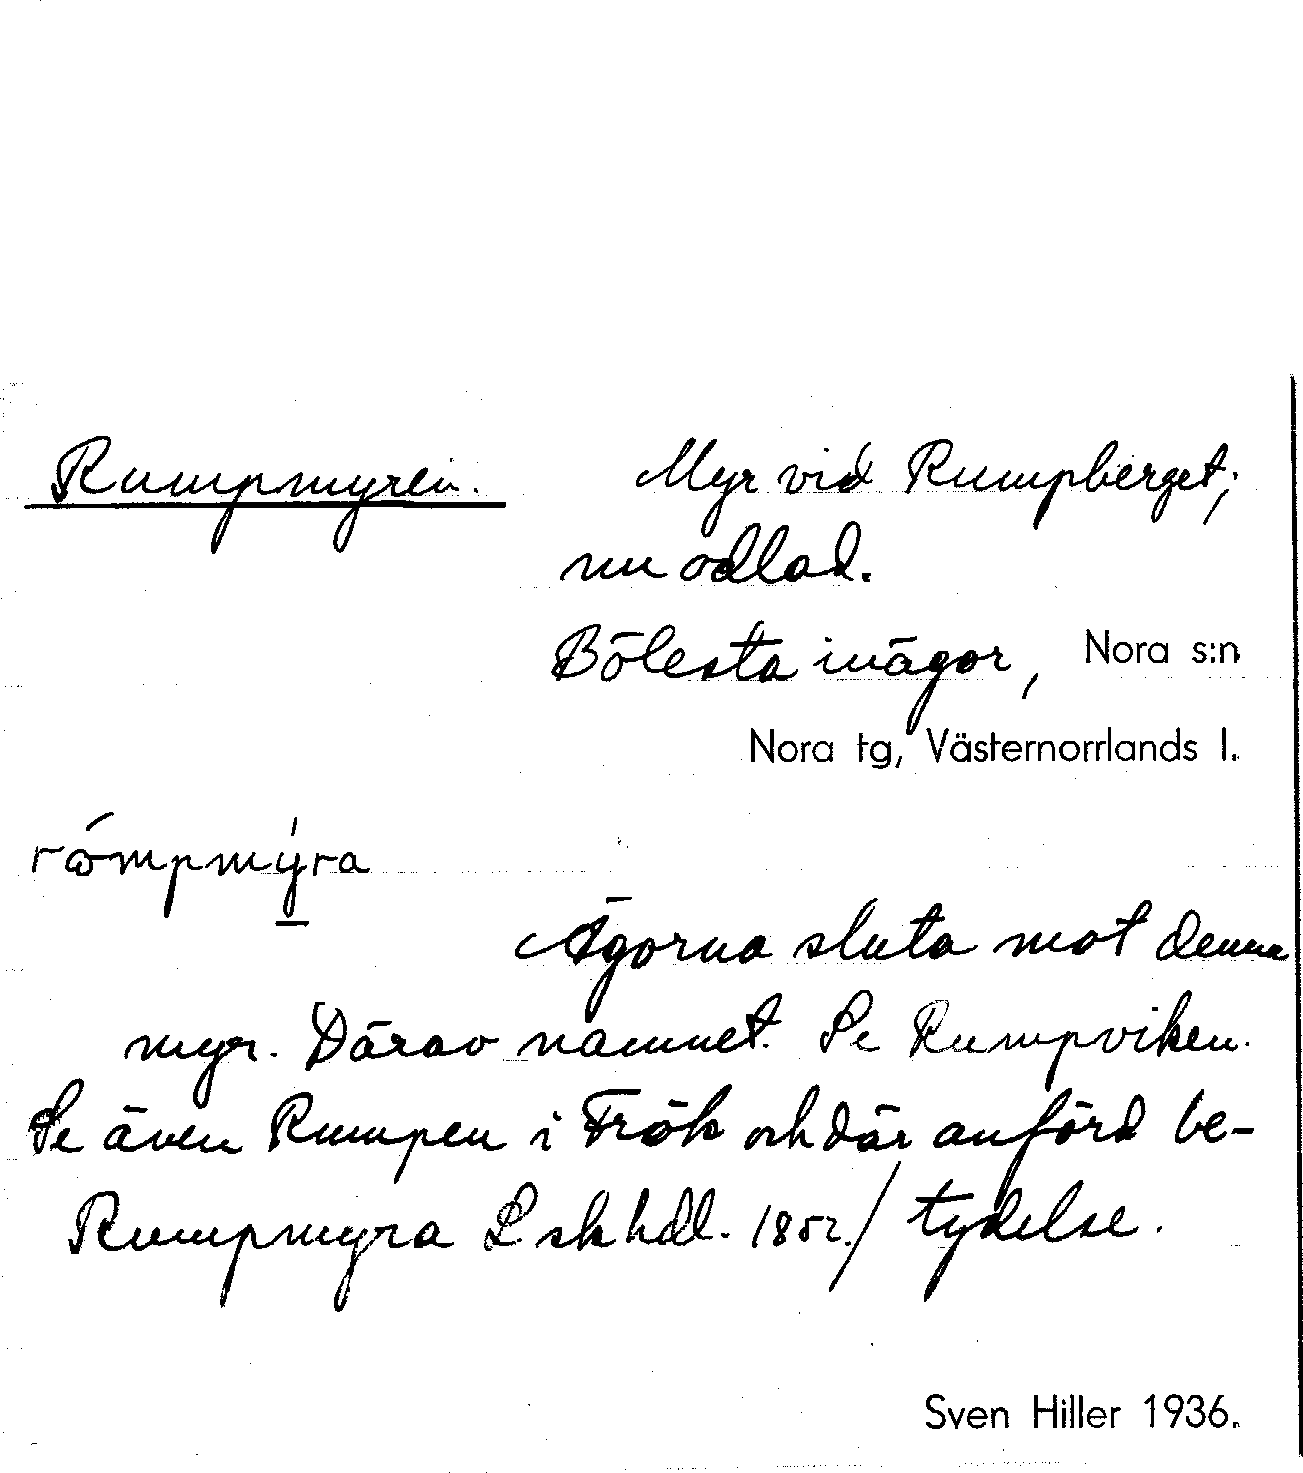 Rumpmyren. Myr vid Rumpberget;
nu odlad.
Bölesta inägor, Nora s:n
Nora tg, Västernorrlands l.
rômpmýra
Ägorna sluta mot denna
myr. Därav namnet. Se Rumpviken.
Se även Rumpen i Frök och där anförd be-
Rumpmyra L skhdl. 1852./ tydelse.
Sven Hiller 1936.